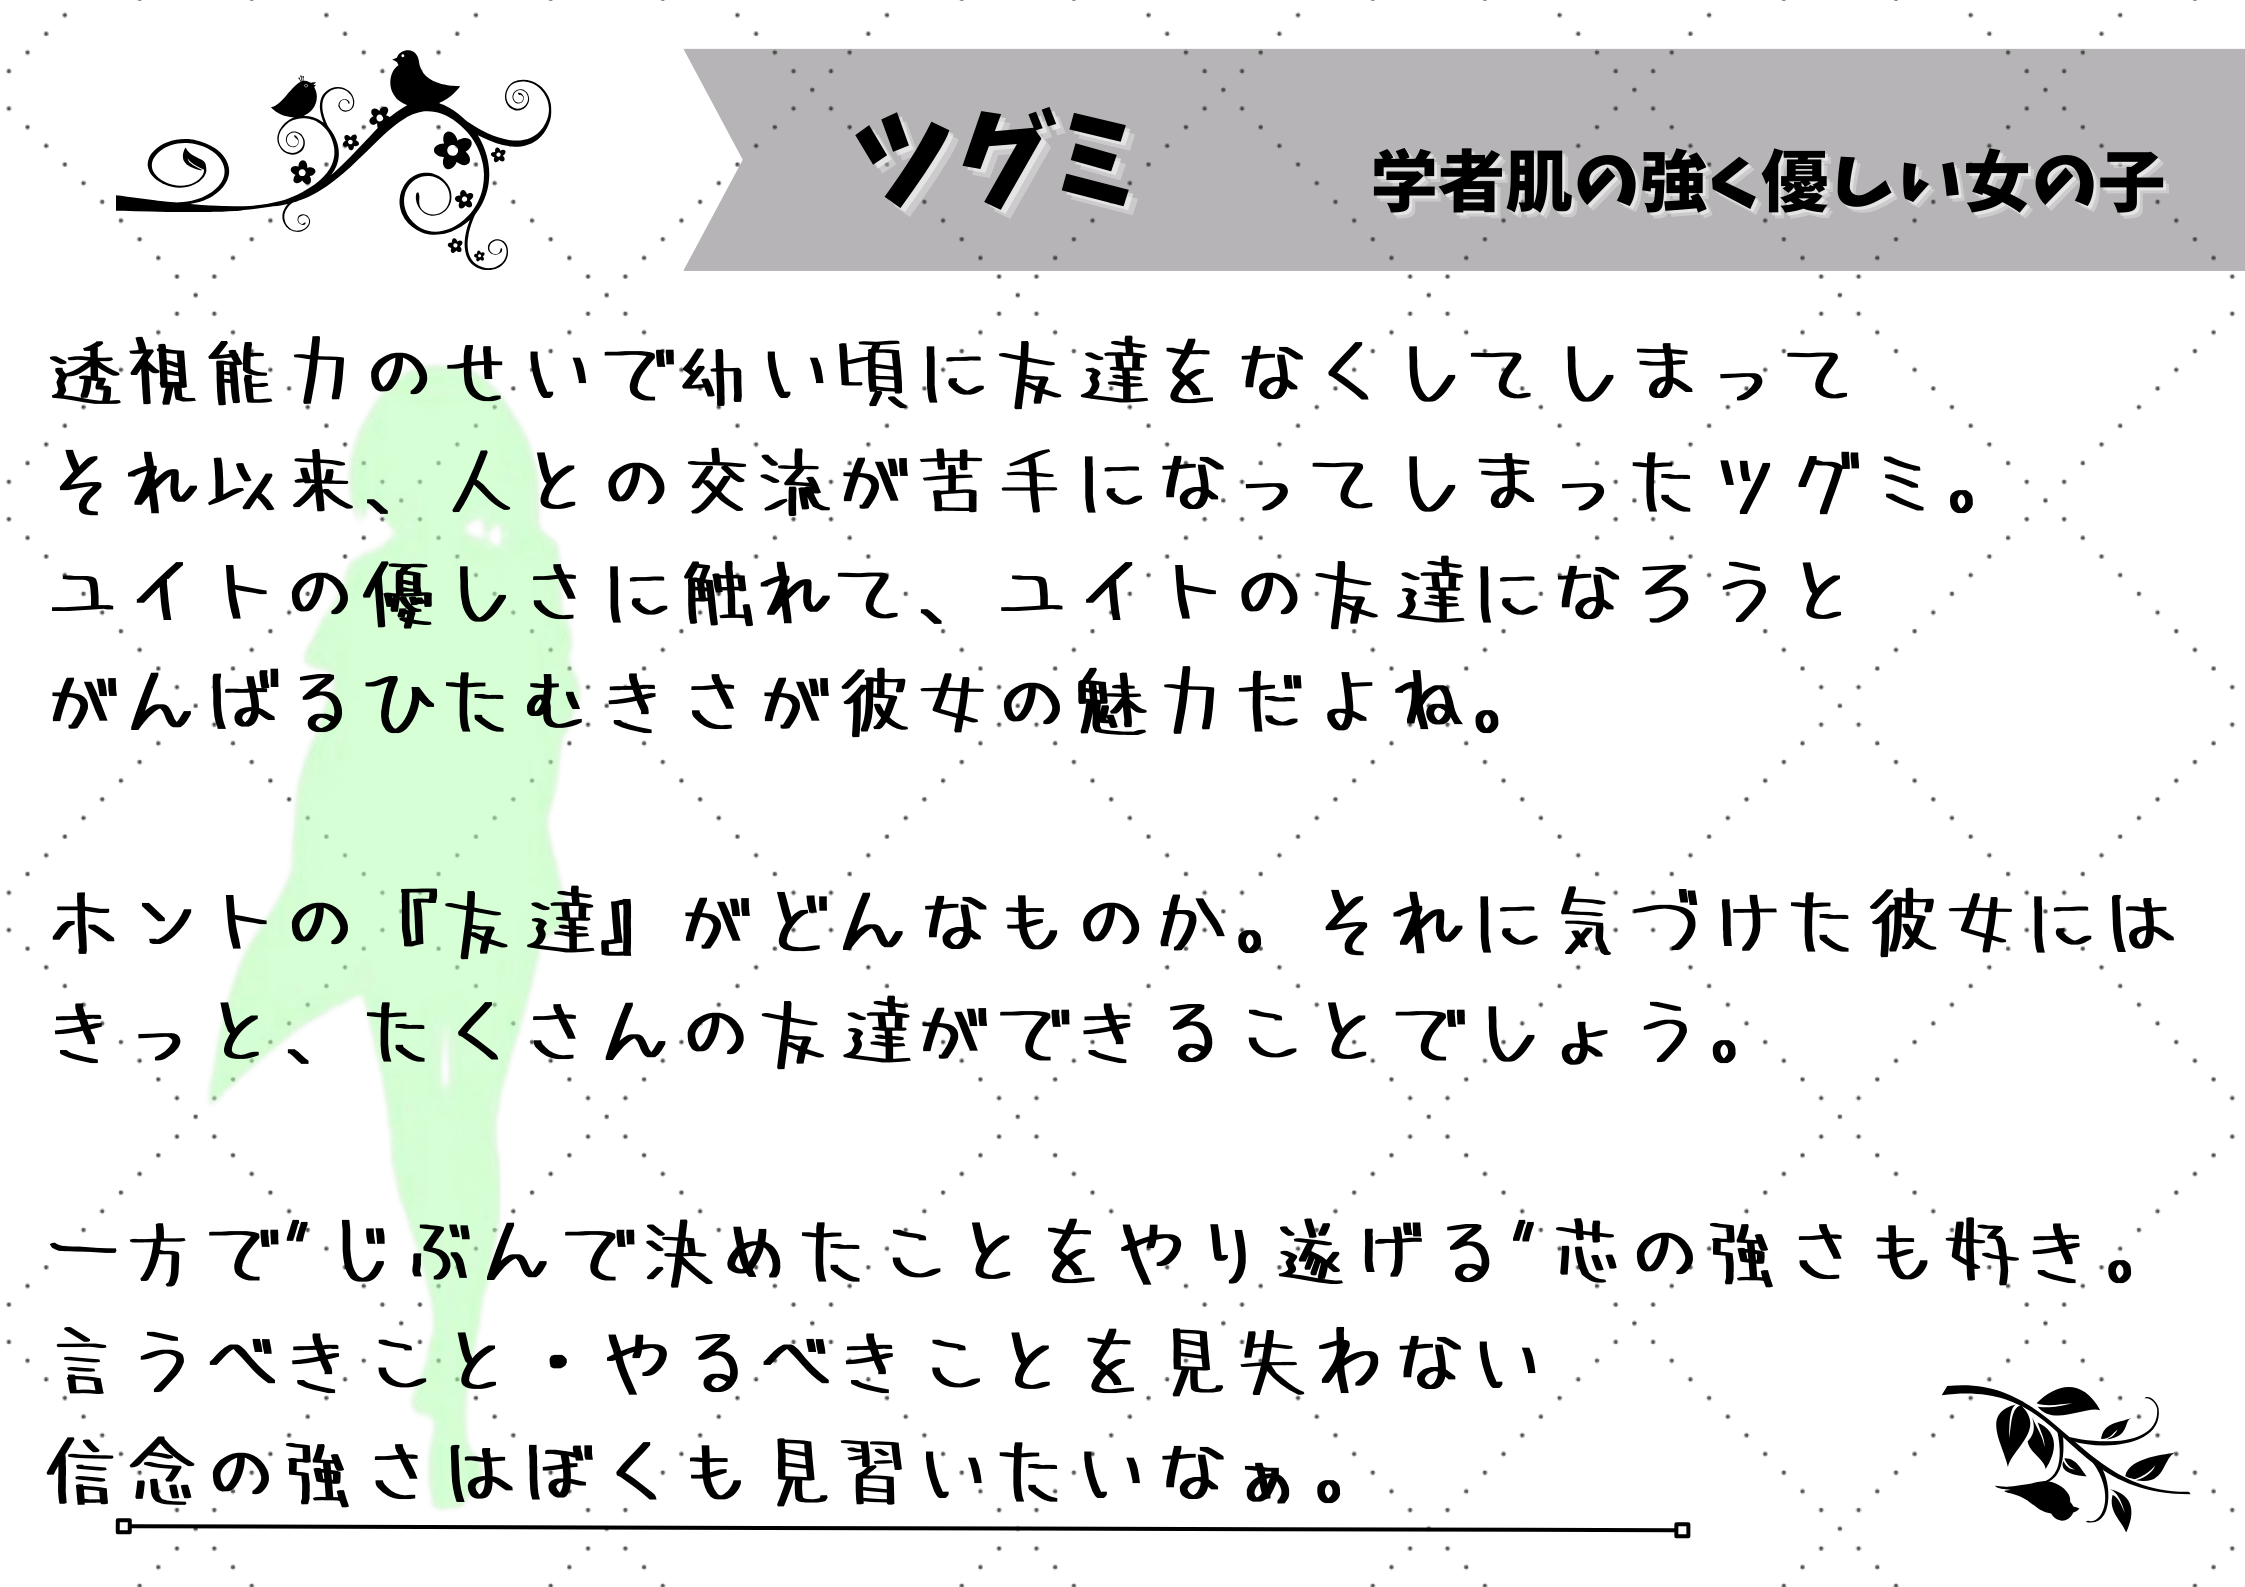 ツグミ
学者肌の強く優しい女の子
透視能力のせいで幼い頃に友達をなくしてしまって
それ以来、人との交流が苦手になってしまったツグミ。
ユイトの優しさに触れて、ユイトの友達になろうと
がんばるひたむきさが彼女の魅力だよね。
ホントの『友達』がどんなものか。それに気づけた彼女には
きっと、たくさんの友達ができることでしょう。
一方で"じぶんで決めたことをやり遂げる"芯の強さも好き。
言うべきこと・やるべきことを見失わない
信念の強さはぼくも見習いたいなぁ。